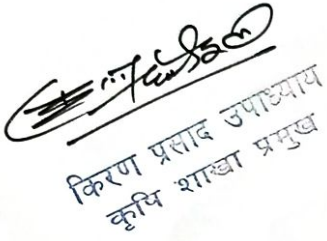 किरण प्रसाद उपाध्याय
कृषि शाखा प्रमुख